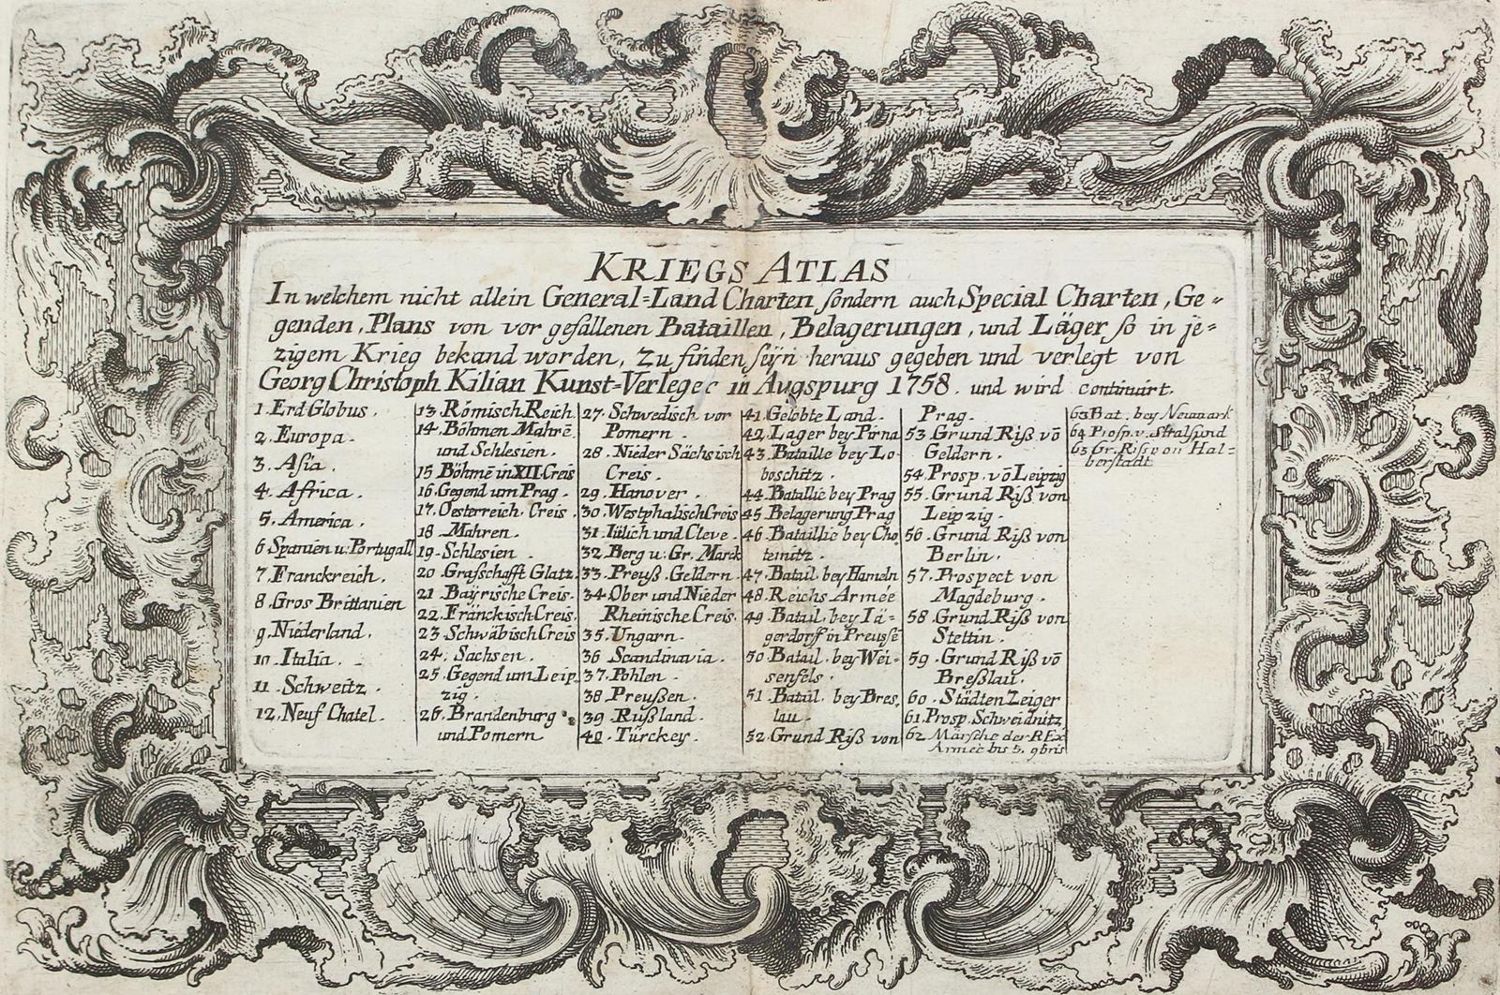 KRIEGS ATLAS
In welchem nicht allein General=Land Charten sondern auch Special Charten, Ge=
genden, Plans von vor gefallenen Bataillen, Belagerungen, und Läger so in je=
zigem Krieg bekand worden, zu finden seÿn heraus gegeben und verlegt von
Georg Christoph Kilian Kunst-Verleger in Augspurg 1758. und wird continuirt.
1. Erd Globus.
2. Europa.
3. Asia.
4. Africa.
5. America.
6 Spanien u. Portugall
7. Franckreich.
8. Gros Brittanien
9. Niederland.
10. Italia.
11. Schweitz.
12. Neuf Chatel.
13. Römisch Reich
14. Böhmen Mahrē
und Schlesien.
15 Böhmē in XII. Creis
16. Gegend um Prag.
17. Oesterreich. Creis.
18 Mahren.
19. Schlesien.
20 Grafschafft Glatz.
21 Bayrische Creis.
22. Fränckisch Creis.
23. Schwäbisch Creis
24. Sachsen.
25. Gegend um Leip
zig.
26. Brandenburg
und Pomern
27. Schwedisch vor
Pomern.
28. Nieder Sächsisch
Creis.
29. Hanover.
30. Westphalisch Creis
31. Iülich und Cleve.
32. Berg u. Gr. Marck
33. Preuß. Geldern.
34. Ober und Nieder
Rheinische Creis.
35. Ungarn.
36 Scandinavia.
37. Pohlen.
38. Preußen.
39. Rußland.
40. Türckey.
41. Gelobte Land.
42. Lager bey Pirna
43. Bataille bey Lo-
boschitz.
44. Bataillie bey Prag
45. Belagerung Prag
46. Bataillie bey Cho
temitz.
47. Batail. bey Hameln
48. Reichs Armée
49. Batail. bey Iä-
gerdorff in Preussē
50. Batail. bey Wei-
senfels.
51. Batail. bey Bres,
lau.
52. Grund Riß von
Prag.
53 Grund Riß vō
Geldern.
54. Prosp. vō Leipzig
55. Grund Riß von
Leipzig.
56. Grund Riß von
Berlin.
57. Prospect von
Magdeburg.
58 Grund Riß von
Stettin.
59. Grund Riß vō
Breßlau.
60. Städten Zeiger
61. Prosp. Schweidnitz
62 Märsche der R Ex
Armee bis 5. 9bris
63 Bat. bey Neumark
64 Prosp. v. Stralsund
65 Gr. Riss von Hal=
berstadt